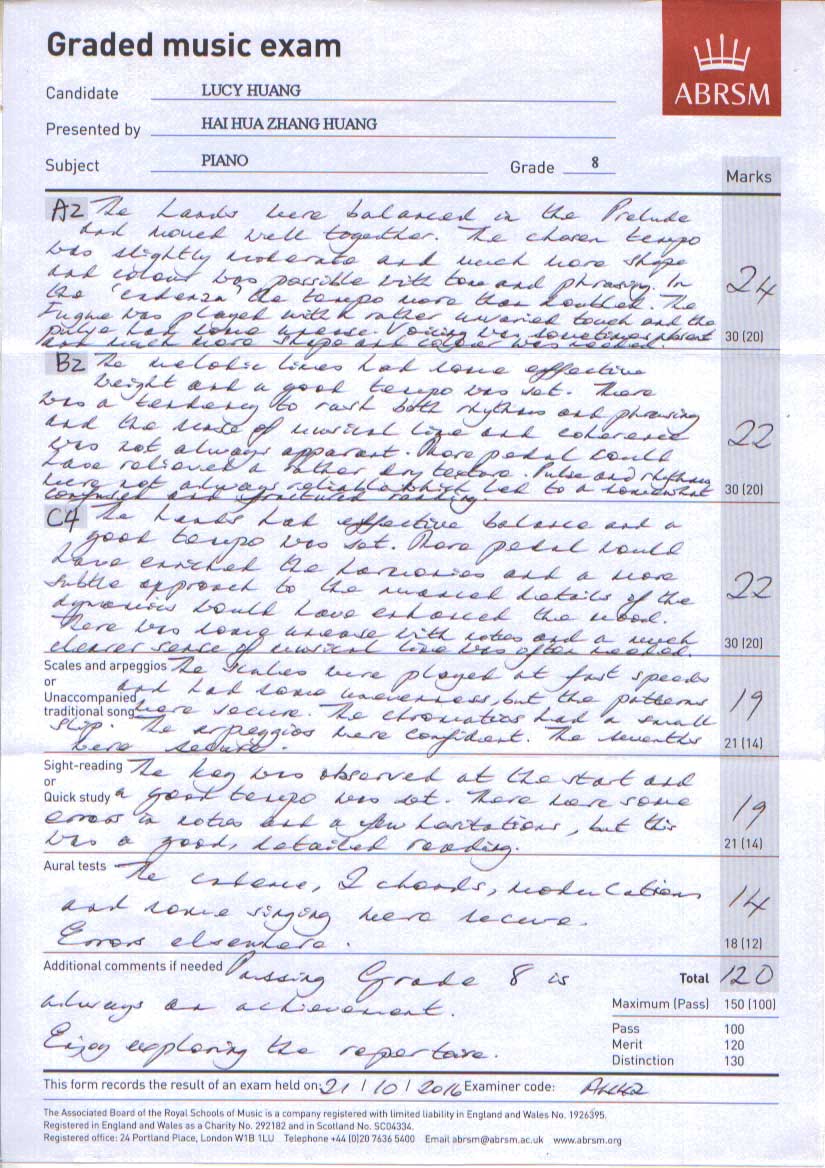 Graded music exam
ABRSM
Candidate LUCY HUANG
Presented by HAI HUA ZHANG HUANG
Subject PIANO Grade 8
Marks
A2 The hands were balanced in the Prelude
and moved well together. The chosen tempo
was slightly moderate and much more shape
and colour was possible with tone and phrasing. In
the 'cadenza' the tempo more than doubled. The
Fugue was played with a rather unvaried touch and the
pulse had some unease. Voicing was sometimes present
and much more shape and colour was needed.
24
30 (20)
B2 The melodic lines had some effective
weight and a good tempo was set. There
was a tendency to rush both rhythms and phrasing
and the sense of musical line and coherence
was not always apparent. More pedal could
have relieved a rather dry texture. Pulse and rhythm
were not always reliable which led to a somewhat
confused and fractured reading.
22
30 (20)
C4 The hands had effective balance and a
good tempo was set. More pedal would
have enriched the harmonies and a more
subtle approach to the musical details of the
dynamics would have enhanced the mood.
There was some unease with notes and a much
clearer sense of musical line was often needed.
22
30 (20)
Scales and arpeggios The scales were played at fast speeds
or and had some unevenness, but the patterns
Unaccompanied
traditional song were secure. The chromatics had a small
slip. The arpeggios were confident. The sevenths
were secure.
19
21 (14)
Sight-reading The key was observed at the start and
or
Quick study a good tempo was set. There were some
errors in notes and a few hesitations, but this
was a good, detailed reading.
19
21 (14)
Aural tests The cadence, 2 chords, modulations
and some singing were secure.
Errors elsewhere.
14
18 (12)
Additional comments if needed Passing Grade 8 is
always an achievement.
Enjoy exploring the repertoire.
Total 120
Maximum (Pass) 150 (100)
Pass 100
Merit 120
Distinction 130
This form records the result of an exam held on: 21 / 10 / 2016 Examiner code:
The Associated Board of the Royal Schools of Music is a company registered with limited liability in England and Wales No. 1926395.
Registered in England and Wales as a Charity No. 292182 and in Scotland No. SC04334.
Registered office: 24 Portland Place, London W1B 1LU Telephone +44 (0)20 7636 5400 Email abrsm@abrsm.ac.uk www.abrsm.org